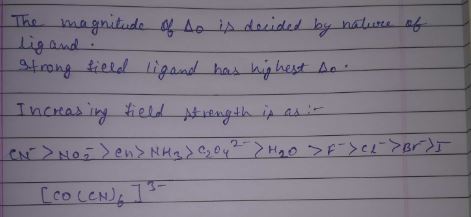 The magnitude of Δo is decided by nature of
ligand.
Strong field ligand has highest Δo.
Increasing field strength is as :-
CN⁻ > NO₂⁻ > en > NH₃ > C₂O₄²⁻ > H₂O > F⁻ > Cl⁻ > Br⁻ > I
[CO(CN)₆]³⁻